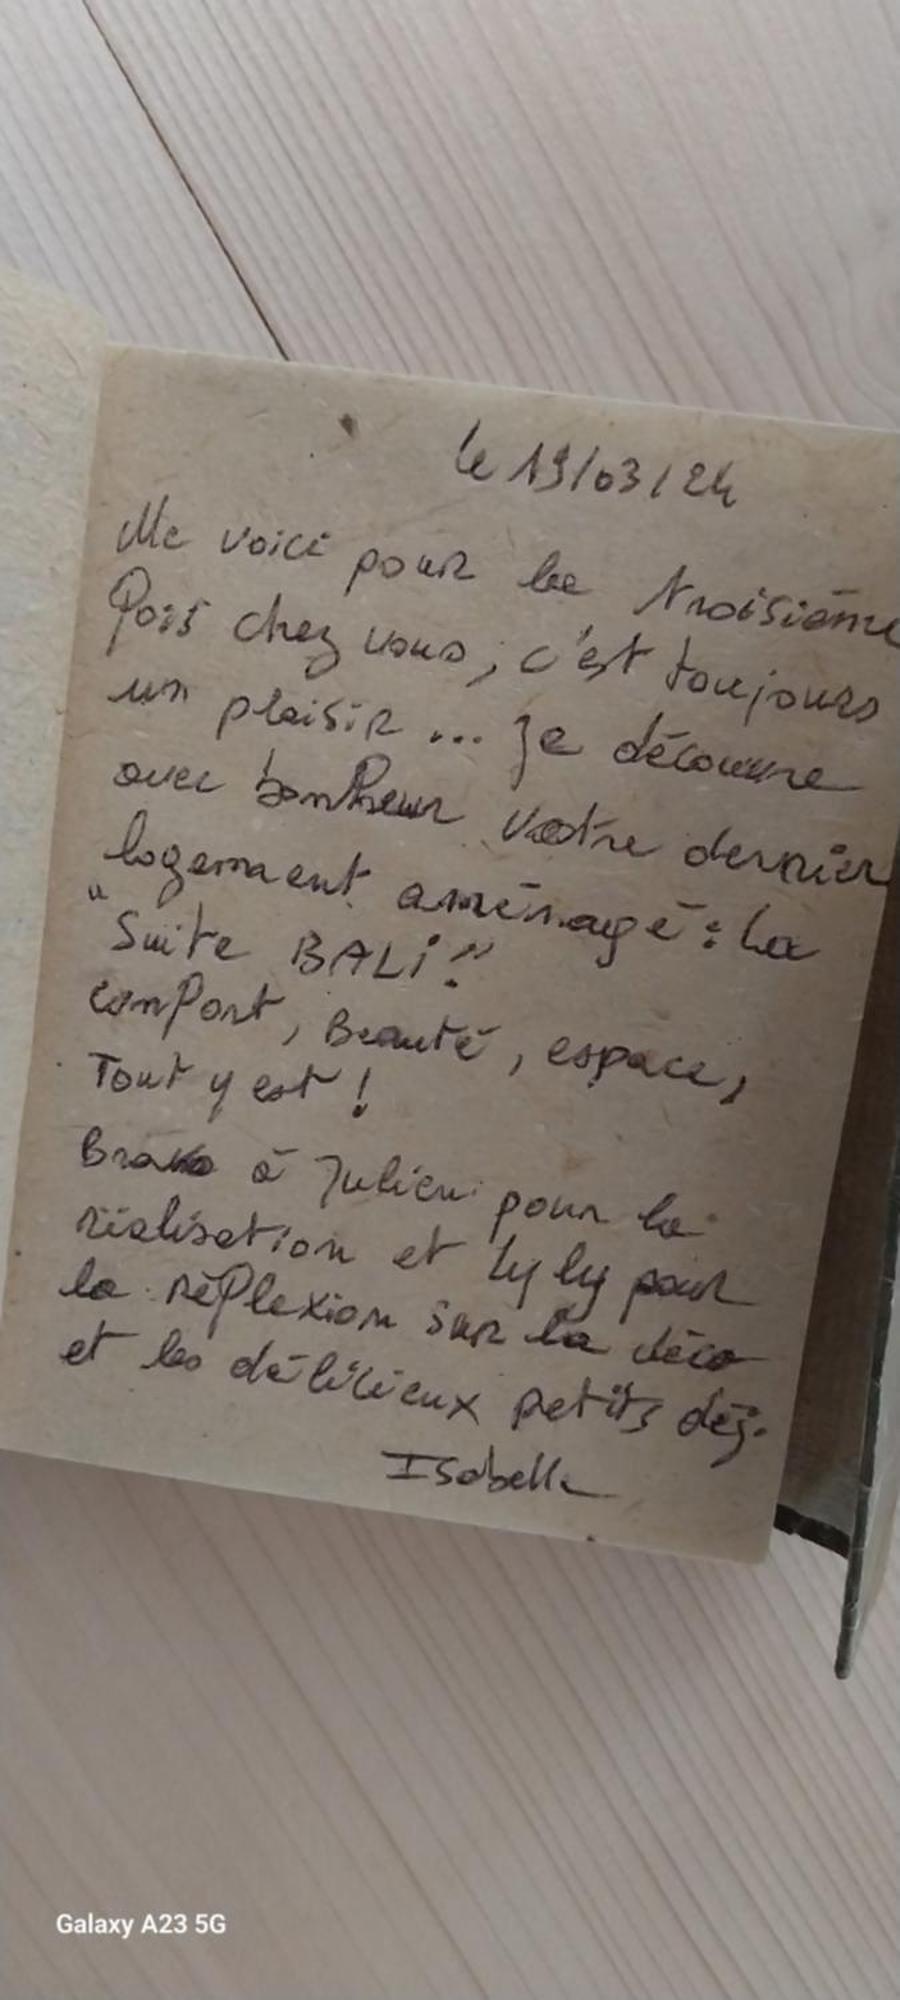 le 19/03/24
Me voici pour la troisième
fois chez vous, c'est toujours
un plaisir ... Je découvre
avec bonheur votre dernier
logement aménagé : la
"Suite BALI".
confort, Beauté, espace,
Tout y est !
Bravo à Julien pour la
réalisation et Lyly pour
la réflexion sur la déco
et les délicieux petits déj.
Isabelle
Galaxy A23 5G